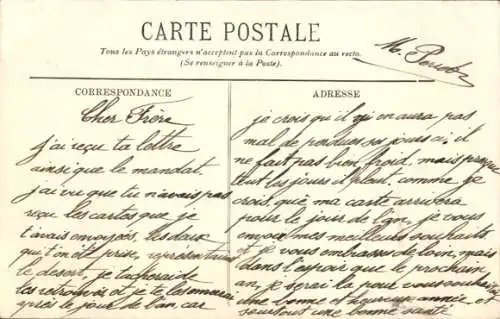 CARTE POSTALE
Tous les Pays étrangers n'acceptent pas la Correspondance au recto.
(Se renseigner à la Poste).
M.
CORRESPONDANCE
Cher Frère
j'ai reçu ta lettre
ainsi que le mandat.
j'ai vu que tu n'avais pas
reçu les cartes que je
t'avais envoyées, les deux
qui t'on été prise, représentaient
le desert, je tacherai de
les retrouvés et je te les
après le jour de l'an, car
ADRESSE
je crois qu'il y en aura pas
mal de perdues ses jours ci. il
ne fait pas bien froid, mais presque
tout les jours il pleut, comme je
crois que ma carte arrivera
pour le jour de l'an, je vous
envoie mes meilleurs souhaits
et je vous embrasse de loin, mais
dans l'espoir que le prochain
an, je serai la pour vous souhaiter
une bonne et heureuse année et
surtout une bonne santé